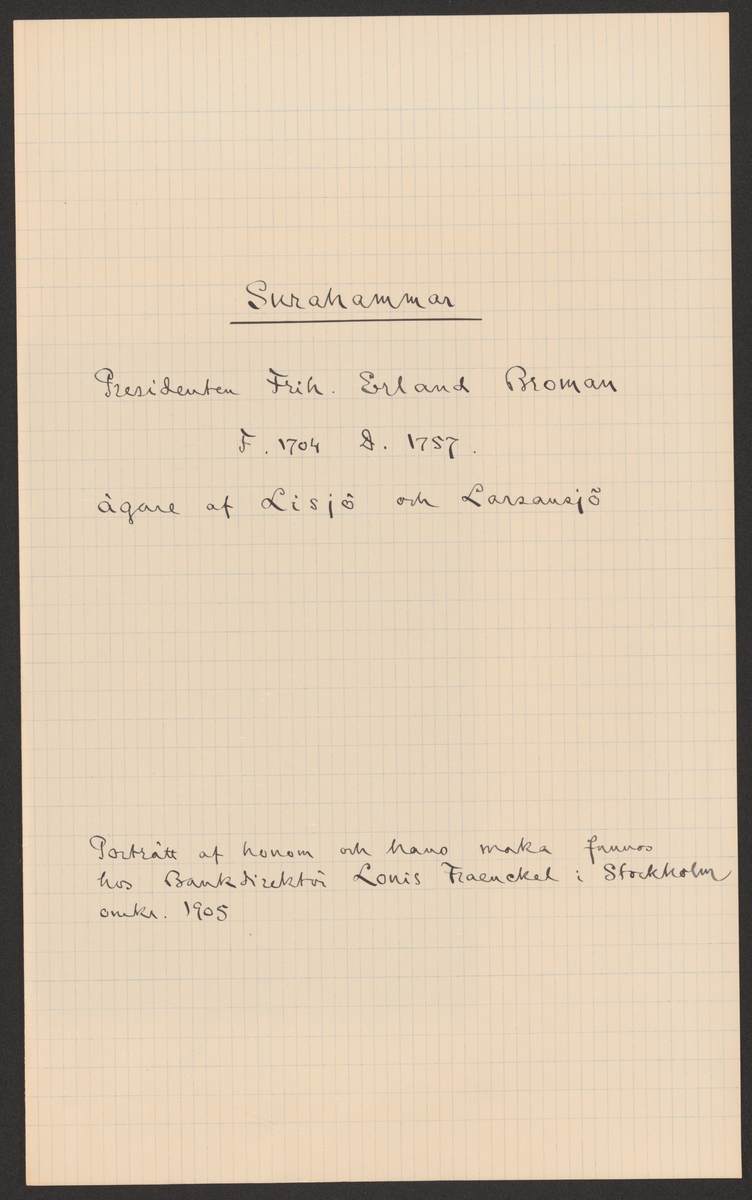 Surahammar
Presidenten Frih. Erland Broman
F. 1704 D. 1757.
ägare af Lisjö och Larsansjö
Porträtt af honom och hans maka finnas
hos Bankdirektör Louis Fraenckel i Stockholm
omkr. 1905